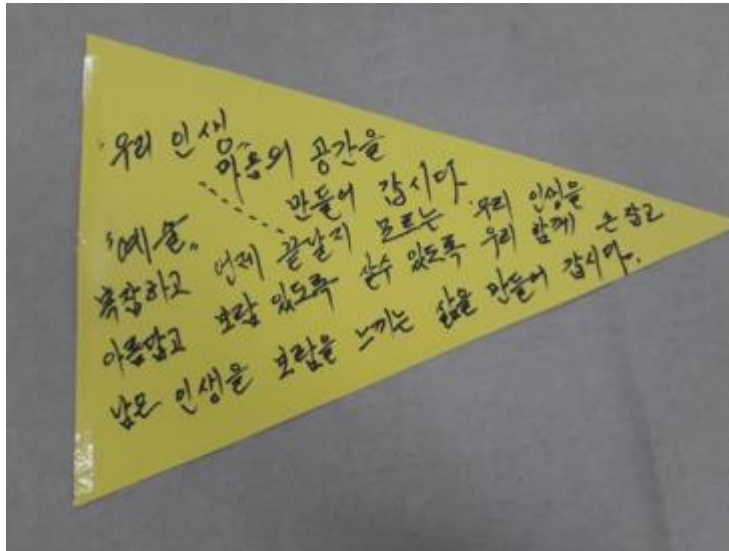 "우리 인생"
마음의 공간을
만들어 갑시다
"예술"
복잡하고 언제 끝날지 모르는 우리 인생을
아름답고 보람 있도록 살수 있도록 우리 함께 손잡고
남은 인생을 보람을 느끼는 삶을 만들어 갑시다.